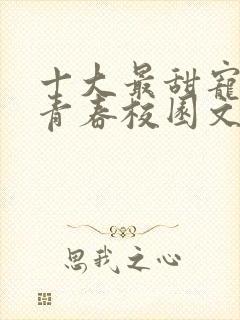 十大最甜宠
青春校园文
思我之心